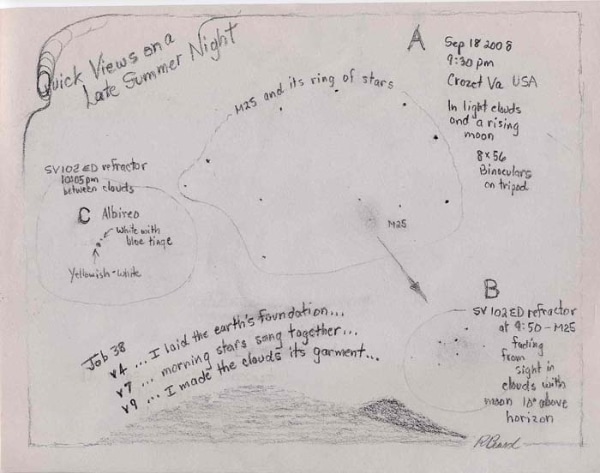 Quick Views on a
Late Summer Night
A
Sep 18 2008
9:30 pm
Crozet Va USA
In light clouds
and a rising
moon
8x56
Binoculars
on tripod
M25 and its ring of stars
M25
SV102 ED refractor
10:05 pm
between clouds
C Albireo
white with
blue tinge
Yellowish-white
B
SV102 ED refractor
at 9:50 - M25
fading
from
sight in
clouds with
moon 10° above
horizon
Job 38
v4 ... I laid the earth's foundation...
v7 ... morning stars sang together...
v9 ... I made the clouds its garment...